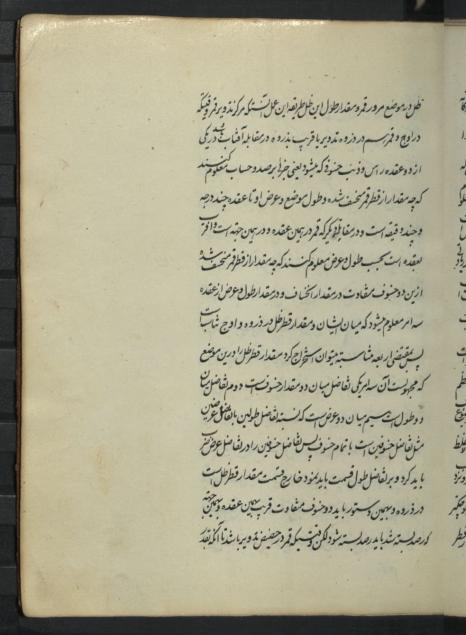 ظل در موضع مرور قمر و مقدار طول این ظل طریقه این عمل آنستکه مرکز تدویر قمر وقتیکه
در اوج و قمر در ذروه تدویر یا قریب بذروه در مقابله آفتاب در یکی
از دو عقده راس و ذنب خسوف که میشود یعنی برصد و حساب معلوم کنند
که چه مقدار از قطر قمر منخسف شده و طول موضع و عرض او تا عقده چند درجه
و چند دقیقه است و در مقابله دیگر که قمر در همین عقده و در همین جهت است و اقرب
بعقده است بحسب طول و عرض معلوم کنند که چه مقدار از قطر قمر منخسف شده
ازین دو خسوف متفاوت در مقدار انخساف و در مقدار طول و عرض از عقده
سه امر معلوم میشود که میان ایشان و مقدار قطر ظل در ذروه و اوج تناسبست
پس بمقتضی اربعه متناسبه میتوان استخراج کرد مقدار قطر ظل را درین موضع
که مجهولست آن سه امر یکی تفاضل میان دو مقدار خسوف است دوم تفاضل میان
دو طول است سیم میان دو عرض است که نسبة تفاضل طولین با تفاضل عرضین
مثل تفاضل خسوفین است با تمام خسوف پس تفاضل خسوفین را در تفاضل عرض ضرب
باید کرد و بر تفاضل طول قسمت باید نمود خارج قسمت مقدار قطر ظل است
در ذروه و بهمین دستور باید دو خسوف متفاوت قریب بهمین عقده و بهمین جهت
که رصد بسته شد باید رصد بسته شود لکن وقتیکه قمر در حضیض تدویر باشد تا آنکه بقدر